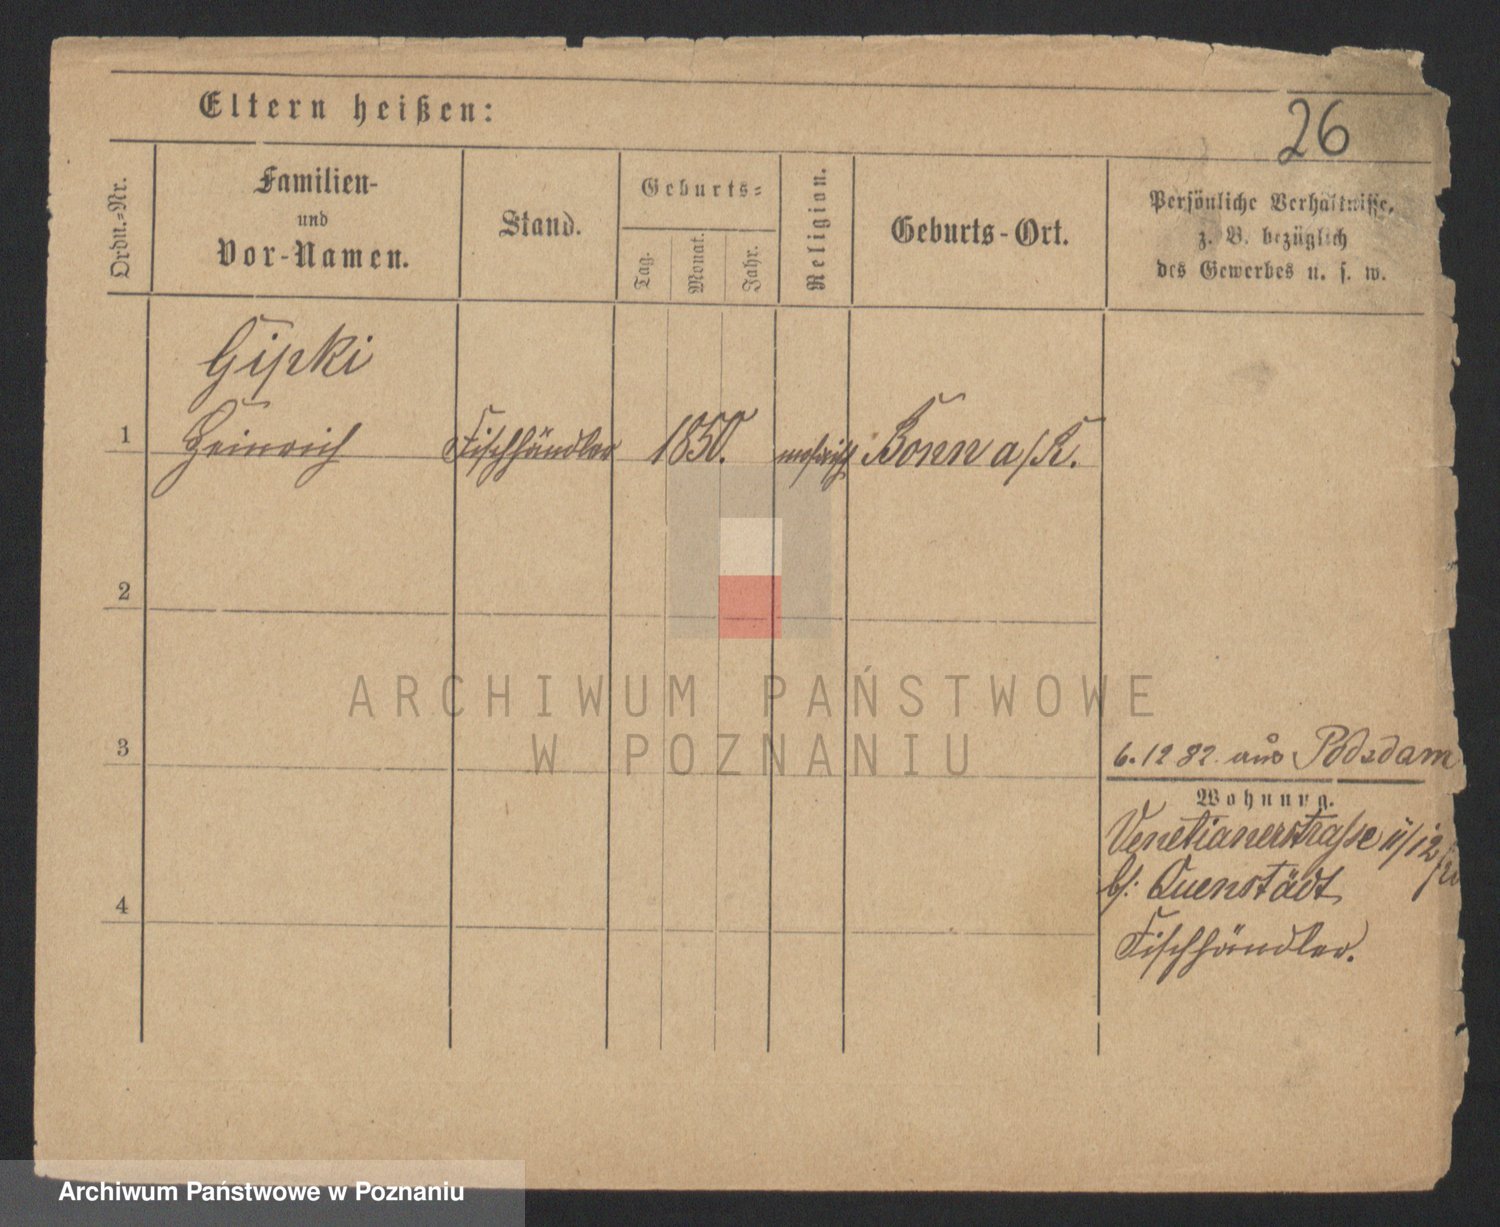 Eltern heißen:
26
Ordn.-Nr.
Familien-
und
Vor-Namen.
Stand.
Geburts-
Tag.
Monat.
Jahr.
Religion.
Geburts-Ort.
Persönliche Verhältnisse,
z. B. bezüglich
des Gewerbes u. s. w.
Gipki
1 Heinrich Fischhändler 1850. mosaisch Bonn a/R.
2
3
4
6.12 82. aus Podsdam
Wohnung.
Venetianerstraße 11/12
bei Quenstädt
Fischhändler.
ARCHIWUM PAŃSTWOWE
W POZNANIU
Archiwum Państwowe w Poznaniu